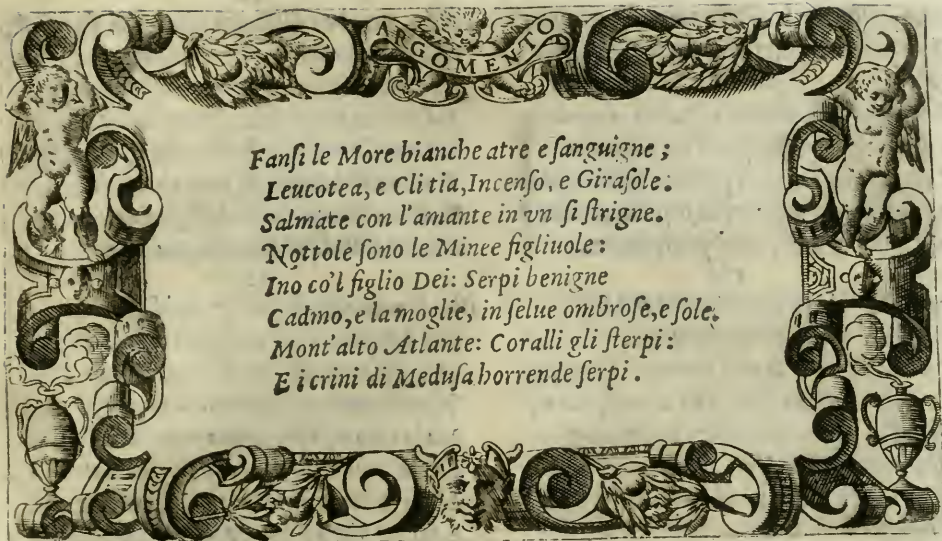 ARGOMENTO
Fanſi le More bianche atre e ſanguigne;
Leucotea, e Cli tia, Incenſo, e Giraſole.
Salmate con l'amante in vn ſi ſtrigne.
Nottole ſono le Minee figliuole:
Ino co'l figlio Dei: Serpi benigne
Cadmo, e la moglie, in ſelue ombroſe, e ſole.
Mont'alto Atlante: Coralli gli ſterpi:
E i crini di Meduſa horrende ſerpi.